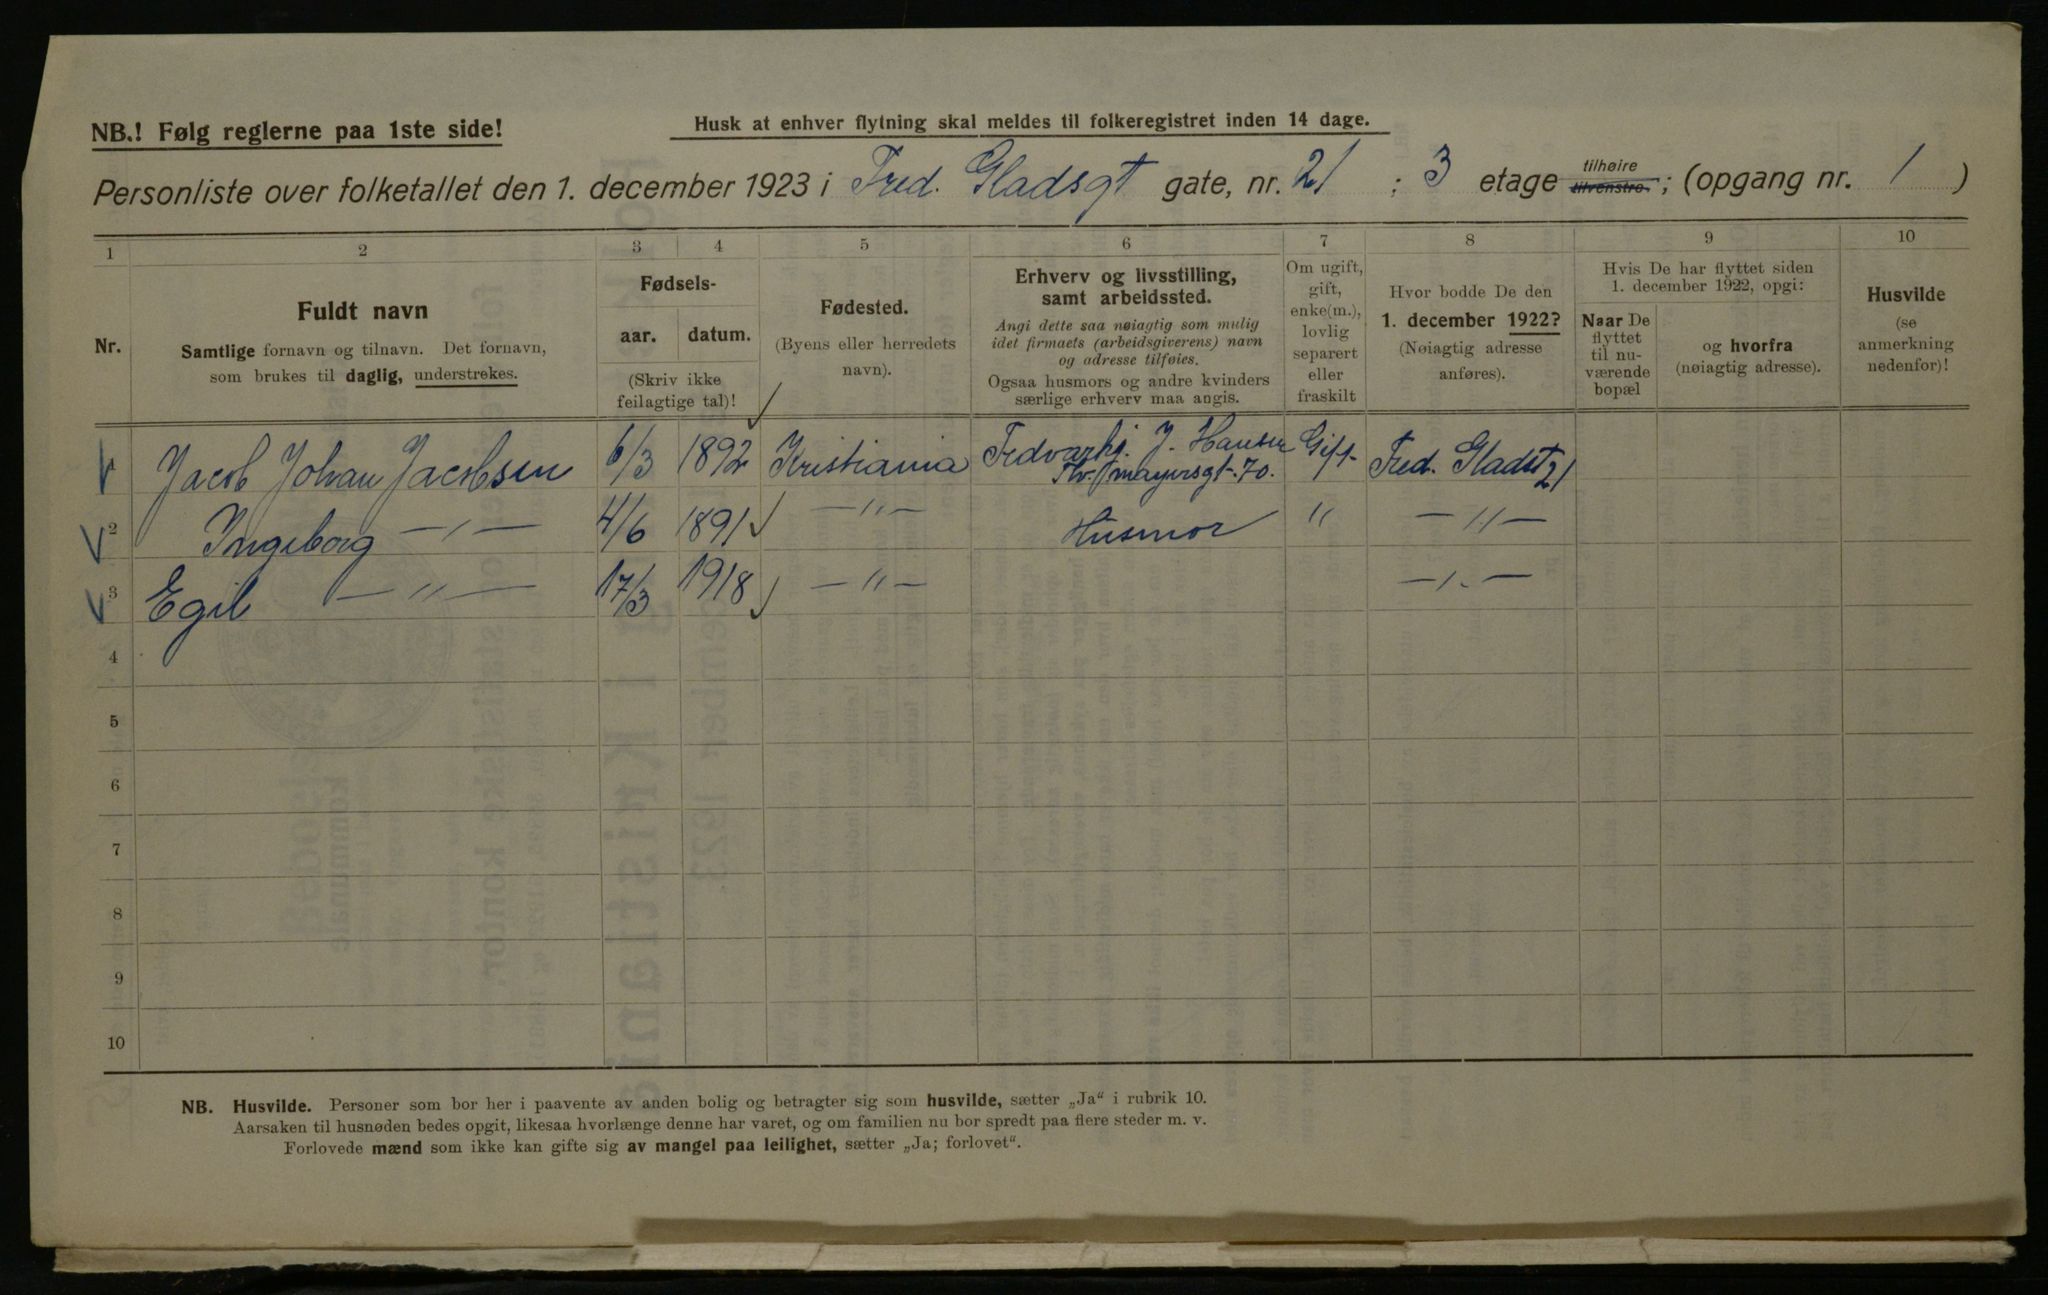 NB.! Følg reglerne paa 1ste side!
Husk at enhver flytning skal meldes til folkeregistret inden 14 dage.
Personliste over folketallet den 1. december 1923 i Fred. Gladsgt gate, nr. 21 ; 3 etage tilhøire tilvenstre. ; (opgang nr. 1 )
1 2 3 4 5 6 7 8 9 10
Nr.
Fuldt navn
Samtlige fornavn og tilnavn. Det fornavn,
som brukes til daglig, understrekes.
Fødsels-
aar. datum.
(Skriv ikke
feilagtige tal)!
Fødested.
(Byens eller herredets
navn).
Erhverv og livsstilling,
samt arbeidssted.
Angi dette saa nøiagtig som mulig
idet firmaets (arbeidsgiverens) navn
og adresse tilføies.
Ogsaa husmors og andre kvinders
særlige erhverv maa angis.
Om ugift,
gift,
enke(m.),
lovlig
separert
eller
fraskilt
Hvor bodde De den
1. december 1922?
(Nøiagtig adresse
anføres).
Hvis De har flyttet siden
1. december 1922, opgi:
Naar De
flyttet
til nu-
værende
bopæl
og hvorfra
(nøiagtig adresse).
Husvilde
(se
anmerkning
nedenfor)!
1 Jacob Johan Jacobsen 6/3 1892 Kristiania J. Hansen Gift Fred. Gladst 21
Th. mayersgt. 70.
2 Ingeborg —"— 4/6 1891 —"— Husmor " —"—
3 Egil —"— 17/3 1918 —"— —"—
4
5
6
7
8
9
10
NB. Husvilde. Personer som bor her i paavente av anden bolig og betragter sig som husvilde, sætter „Ja“ i rubrik 10.
Aarsaken til husnøden bedes opgit, likesaa hvorlænge denne har varet, og om familien nu bor spredt paa flere steder m. v.
Forlovede mænd som ikke kan gifte sig av mangel paa leilighet, sætter „Ja; forlovet“.